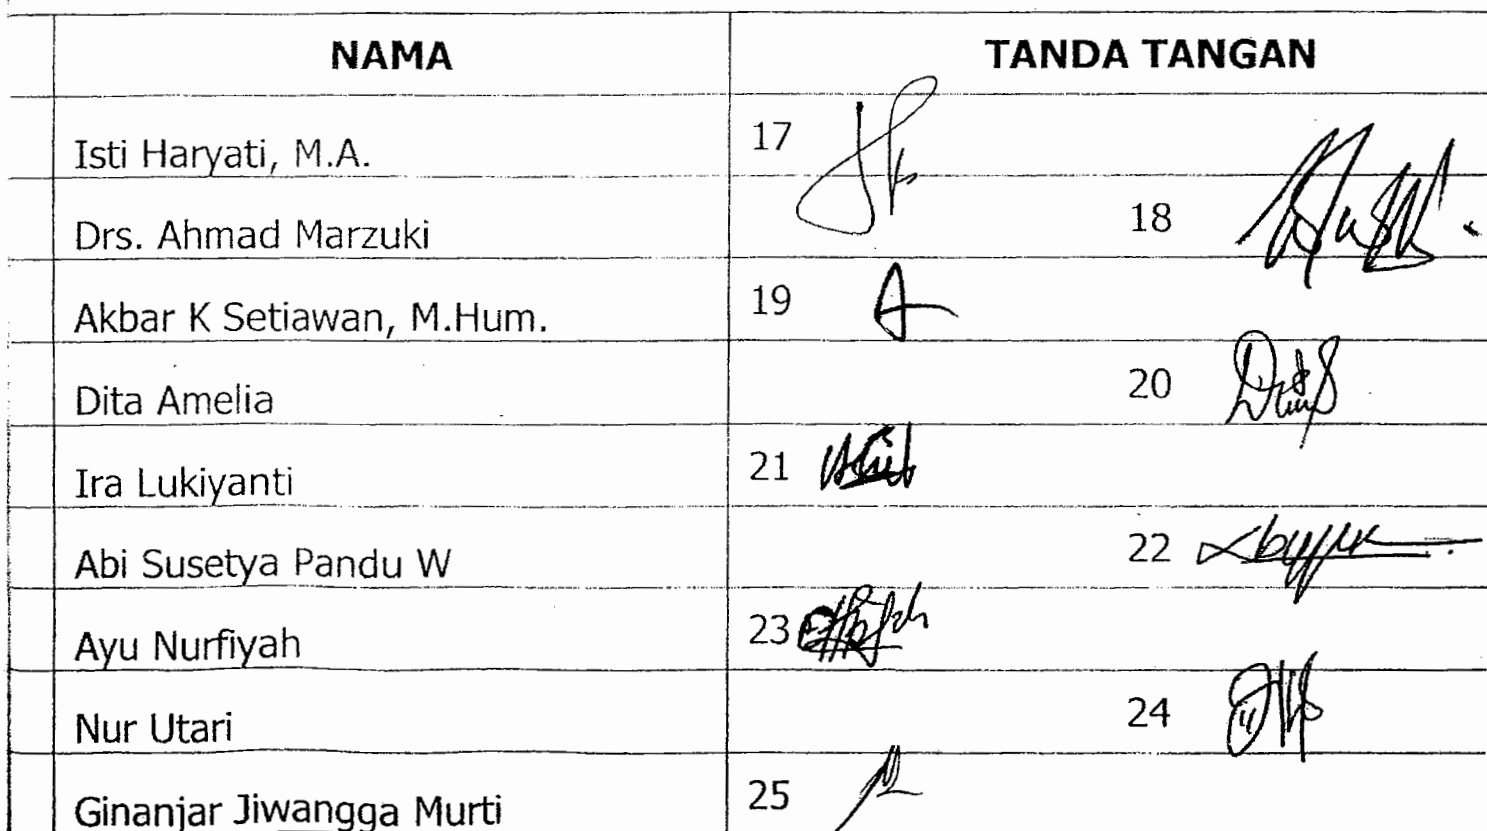 NAMA TANDA TANGAN
Isti Haryati, M.A. 17
Drs. Ahmad Marzuki 18
Akbar K Setiawan, M.Hum. 19
Dita Amelia 20
Ira Lukiyanti 21
Abi Susetya Pandu W 22
Ayu Nurfiyah 23
Nur Utari 24
Ginanjar Jiwangga Murti 25